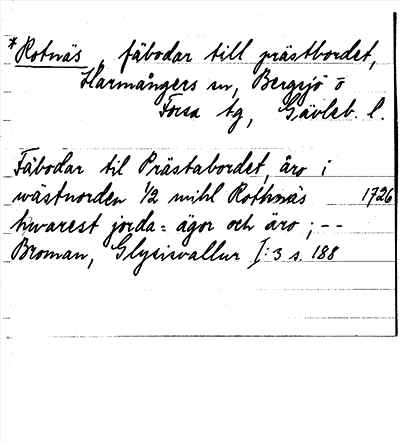 *Rotnäs, fäbodar till prästbordet,
Harmångers sn, Bergsjö o
Forsa tg, Gävleb. l.
Fäbodar til Prästabordet äro i
wästnorden 1/2 mihl Rothnäs 1726
hwarest jorda= ägor och äro ; --
Broman, Glysisvallur I:3 s. 188